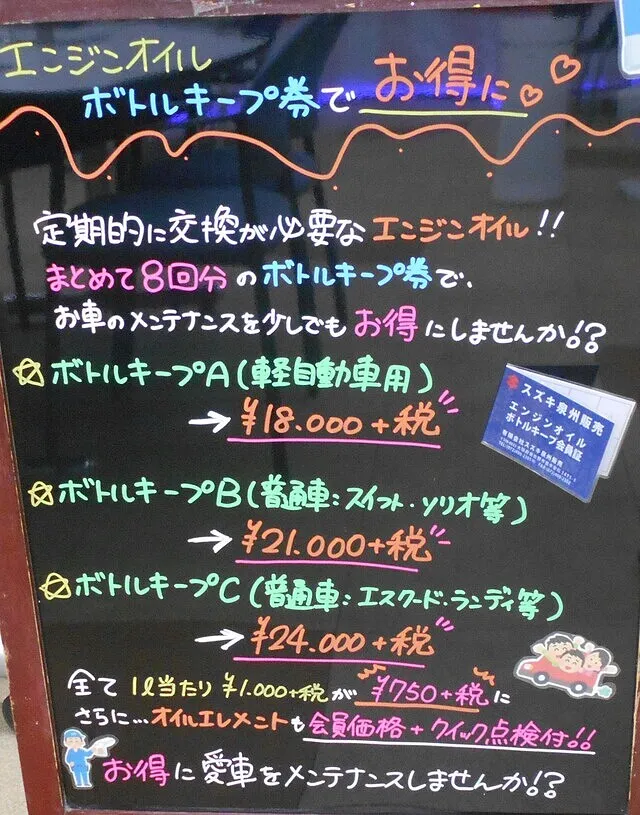 エンジンオイル
ボトルキープ券でお得に♡♡
定期的に交換が必要なエンジンオイル!!
まとめて8回分のボトルキープ券で、
お車のメンテナンスを少しでもお得にしませんか!?
☆ボトルキープA(軽自動車用)
→¥18.000+税
スズキ泉州販売
エンジンオイル
ボトルキープ会員証
有限会社スズキ泉州販売
☆ボトルキープB(普通車:スイフト・ソリオ等)
→¥21.000+税
☆ボトルキープC(普通車:エスクード・ランディ等)
→¥24.000+税
全て1ℓ当たり¥1.000+税が¥750+税に
さらに…オイルエレメントも会員価格+クイック点検付!!
お得に愛車をメンテナンスしませんか!?